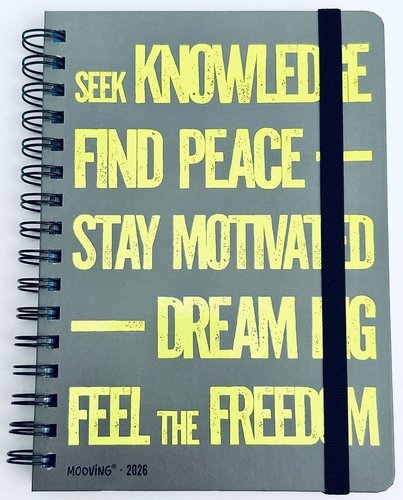 SEEK KNOWLEDGE
FIND PEACE —
STAY MOTIVATED
— DREAM BIG
FEEL THE FREEDOM
MOOVING® · 2026